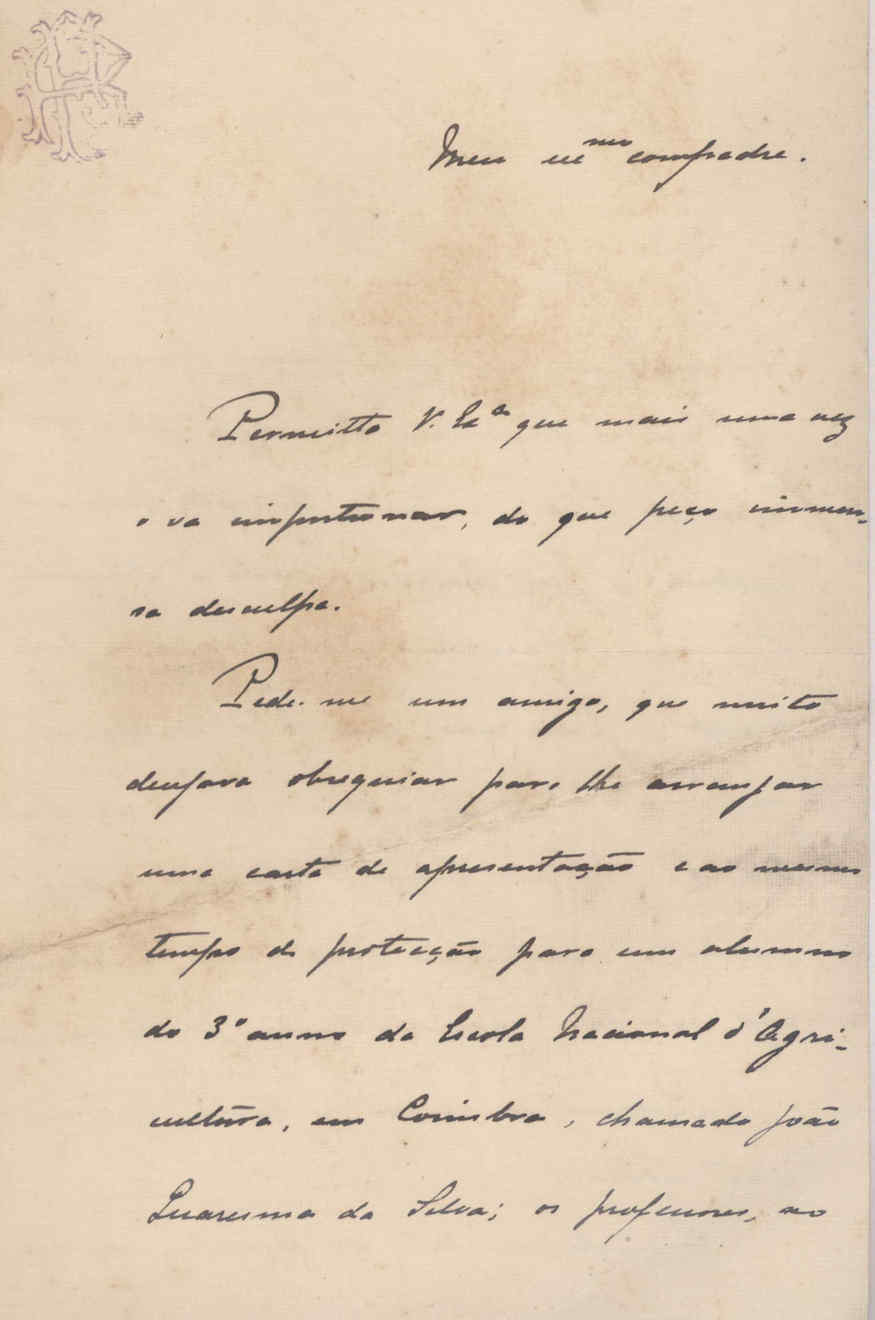 Meu Ex^mo compadre.
Permitta V. Ex^a que mais uma vez
o vá importunar, do que peço immen-
sa desculpa.
Pede-me um amigo, que muito
desejava obsequiar para lhe arranjar
uma carta de apresentação e ao mesmo
tempo de protecção para um alumno
do 3º anno da Escola Nacional d'Agri-
cultura, em Coimbra, chamado João
Quaresma da Silva; os professores, ao